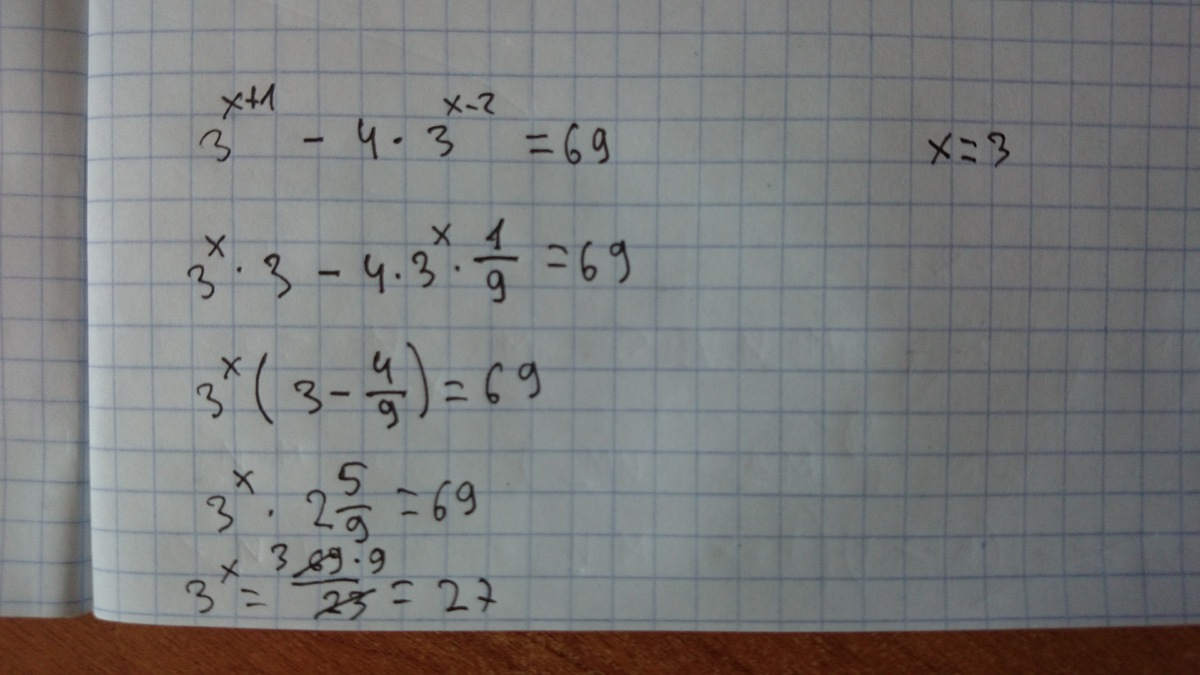 3^{x+1} - 4 · 3^{x-2} = 69
x = 3
3^x · 3 - 4 · 3^x · \frac{1}{9} = 69
3^x ( 3 - \frac{4}{9} ) = 69
3^x · 2\frac{5}{9} = 69
3^x = \frac{3 \cancel{69} · 9}{\cancel{23}} = 27